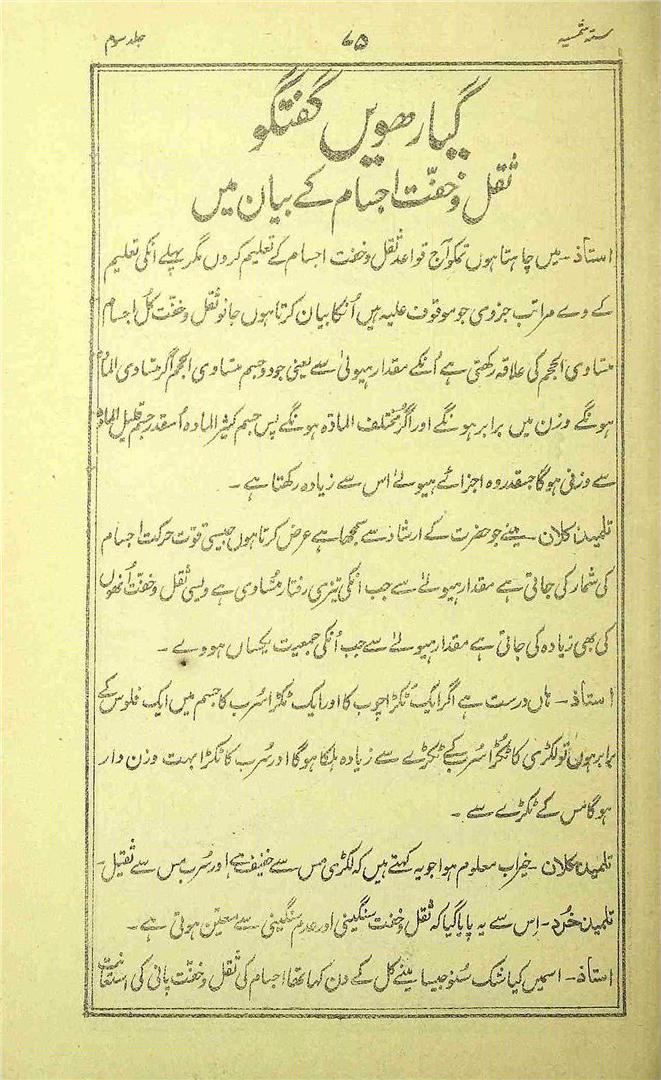 ستہ شمسیہ ۷۵ جلد سوم
گیارھویں گفتگو
ثقل و خفّت اجسام کے بیان میں
استاذ۔ میں چاہتا ہوں تمکو آج قواعد ثقل و خفت اجسام کے تعلیم کروں مگر پہلے انکی تعلیم
کے وے مراتب جزوی جو موقوف علیہ ہیں اُنکا بیان کرتا ہوں جانو ثقل و خفّت کُل اجسام
متساوی الحجم کی علاقہ رکھتی ہے اُنکے مقدار ہیولیٰ سے یعنی جو دو جسم متساوی الحجم اگر متساوی المادہ
ہونگے وزن میں برابر ہونگے اور اگر مُختلف المادّہ ہونگے پس جسم کثیر المادہ اُسقدر جسم قلیل المادہ
سے وزنی ہوگا جسقدر وہ اجزائے ہیولےٰ اس سے زیادہ رکھتا ہے۔
تلمیذ کلان۔ مینے جو حضرت کے ارشاد سے سمجھا ہے عرض کرتا ہوں جیسی قوت حرکت اجسام
کی شمار کی جاتی ہے مقدار ہیولےٰ سے جب انکی تیزی رفتار متساوی ہے ویسی ثقل و خفّت اُنھوں
کی بھی زیادہ کی جاتی ہے مقدار ہیولےٰ سے جب اُنکی جمعیت یکساں ہووے۔
استاذ۔ ہاں درست ہے اگر ایک ٹکڑا چوب کا اور ایک ٹکڑا سُرب کا جسم میں ایک فلوس کے
برابر ہوں تو لکڑی کا ٹکڑا سُرب کے ٹکڑے سے زیادہ ہلکا ہوگا اور سُرب کا ٹکڑا بہت وزن دار
ہوگا مس کے ٹکڑے سے۔
تلمیذ کلان۔ خیر اب معلوم ہوا جو یہ کہتے ہیں کہ لکڑی مس سے خفیف ہے اور سُرب مس سے ثقیل۔
تلمیذ خُرد۔ اِس سے یہ پایا گیا کہ ثقل و خفت سنگینی اور عدم سنگینی سے معیّن ہوتی ہے۔
استاذ۔ اسمیں کیا شک سُنو جیسا مینے کل کے دن کہا تھا اجسام کی ثقل و خفّت پانی کی استعانت